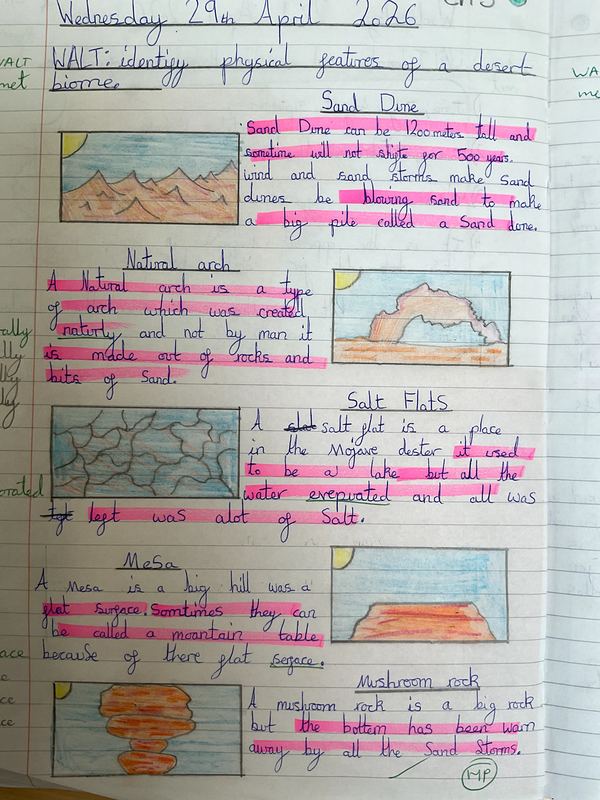 Wednesday 29th April 2026
WALT: identify physical features of a desert
biome.
WALT
met
Sand Dune
Sand Dune can be 1200 meters tall and
sometime will not shifte for 500 years.
wind and sand storms make sand
dunes be blowing sand to make
a big pile called a Sand done.
Natural arch
A Natural arch is a type
of arch which was created
naturly and not by man it
is made out of rocks and
bits of Sand.
Salt Flats
A salt flat is a place
in the Mojave dester it used
to be a lake but all the
water evepvated and all was
left was alot of Salt.
Mesa
A Mesa is a big hill was a
flat surface. Somtimes they can
be called a mountain table
because of there flat serface.
Mushroom rock
A mushroom rock is a big rock
but the bottem has been warn
away by all the Sand Storms.
MP